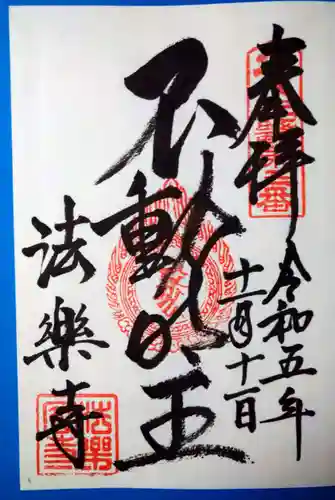 奉拝
令和五年
十一月十一日
不動明王
法樂寺